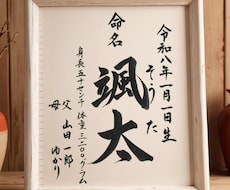 令和八年一月一日生
そうた
命名 颯太
身長五十センチ 体重三二〇〇グラム
父 山田一郎
母 ゆかり